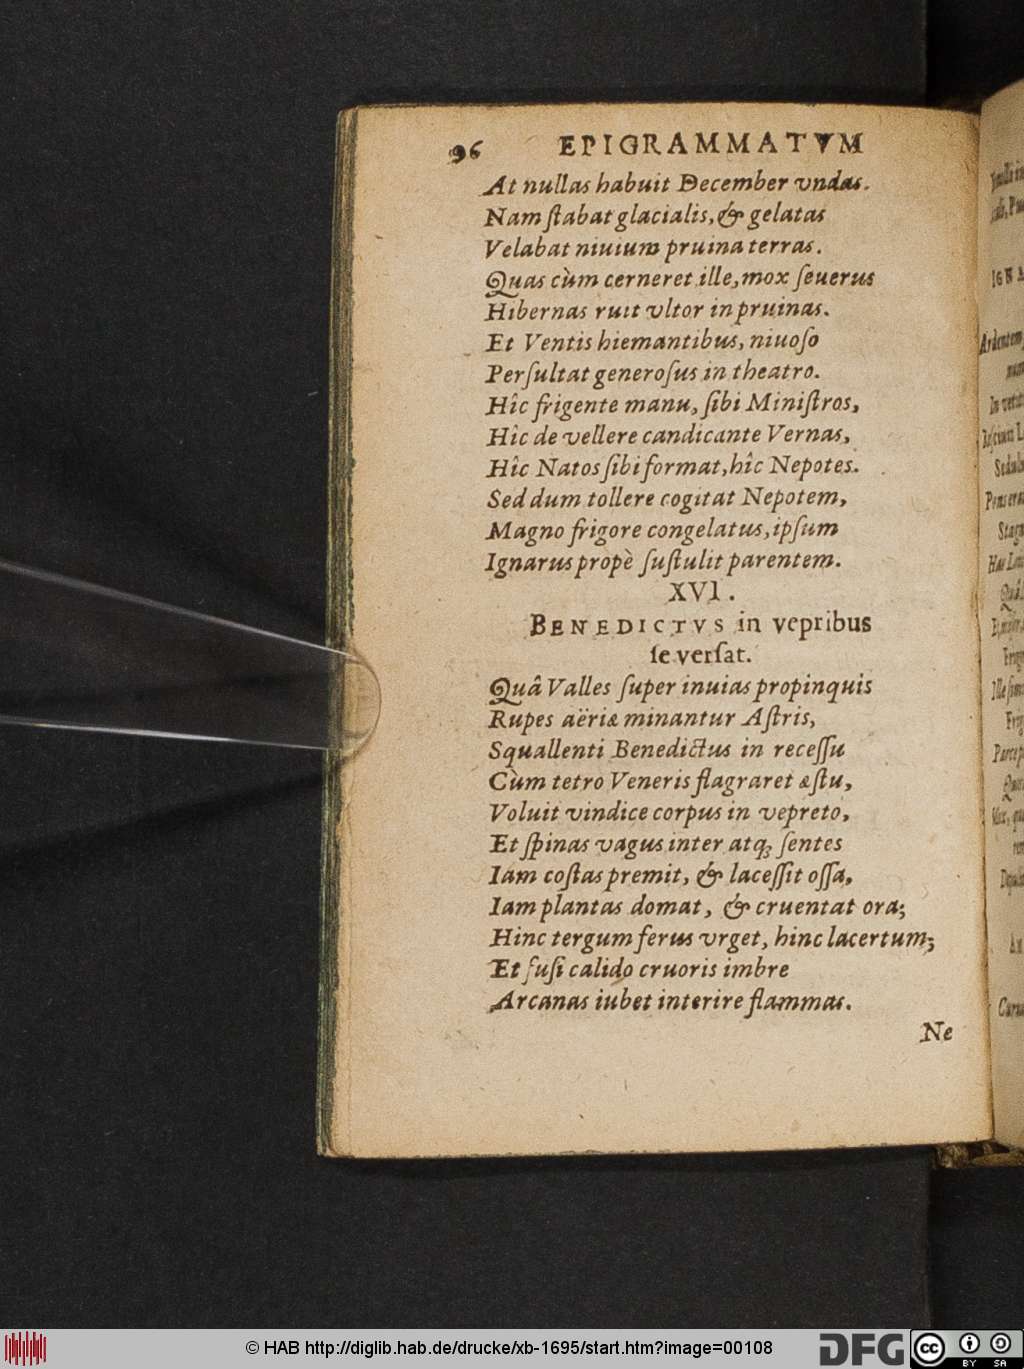 96 EPIGRAMMATVM
At nullas habuit December vndas.
Nam ſtabat glacialis, & gelatas
Velabat niuium pruina terras.
Quas cùm cerneret ille, mox ſeuerus
Hibernas ruit vltor in pruinas.
Et Ventis hiemantibus, niuoſo
Perſultat generoſus in theatro.
Hîc frigente manu, ſibi Miniſtros,
Hîc de vellere candicante Vernas,
Hîc Natos ſibi format, hîc Nepotes.
Sed dum tollere cogitat Nepotem,
Magno frigore congelatus, ipſum
Ignarus propè ſuſtulit parentem.
XVI.
BENEDICTVS in vepribus
ſe verſat.
Quâ Valles ſuper inuias propinquis
Rupes aëriæ minantur Aſtris,
Squallenti Benedictus in receſſu
Cùm tetro Veneris flagraret æſtu,
Voluit vindice corpus in vepreto,
Et ſpinas vagus inter atq; ſentes
Iam coſtas premit, & laceſſit oſſa,
Iam plantas domat, & cruentat ora;
Hinc tergum ferus vrget, hinc lacertum;
Et fuſi calido cruoris imbre
Arcanas iubet interire flammas.
Ne
© HAB http://diglib.hab.de/drucke/xb-1695/start.htm?image=00108
DFG
cc BY SA